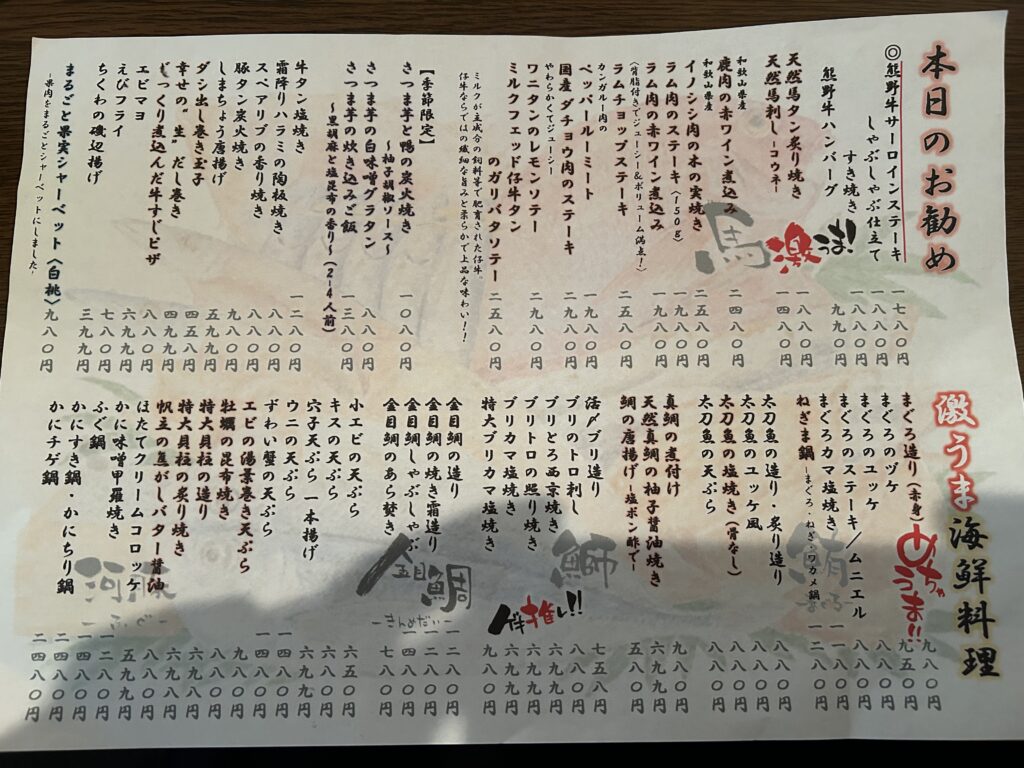 本日のお勧め
◎熊野牛サーロインステーキ 一七八〇円
しゃぶしゃぶ仕立て 一八八〇円
すき焼き 一八八〇円
熊野牛ハンバーグ 九九九円
天然馬タン炙り焼き 一四八〇円
天然馬刺し-コウネ- 一八八〇円
馬
激うま!
和歌山県産
鹿肉の赤ワイン煮込み 二四八〇円
和歌山県産
イノシシ肉の木の実焼き 二五八〇円
ラム肉のステーキ(150g) 一九八〇円
ラム肉の赤ワイン煮込み 一九八〇円
ラムチョップステーキ 二五八〇円
(骨脂付きでジューシー&ボリューム満点!)
カンガルー肉の
ペッパールーミート 一九八〇円
国産ダチョウ肉のステーキ 二九八〇円
やわらかくてジューシー
ワニタンのレモンソテー 二九八〇円
ミルクフェッド仔牛タン
のガリバタソテー 二五八〇円
ミルクが主成分の飼料等で肥育された仔牛。
仔牛ならではの繊細な旨みと柔らかで上品な味わい!!
【季節限定】
さつま芋と鴨の炭火焼き 一〇八〇円
〜柚子胡椒ソース〜
さつま芋の白味噌グラタン 八八〇円
さつま芋の炊き込みご飯 一三八〇円
〜黒胡麻と塩昆布の香り〜(2-4人前)
牛タン塩焼き 一二八〇円
霜降りハラミの陶板焼き 八八〇円
スペアリブの香り焼き 八八〇円
豚タン炭火焼き 九八〇円
しまちょう唐揚げ 五九九円
ダシ出し巻き玉子
幸せの“生”だし巻き
じっくり煮込んだ牛すじピザ 八八〇円
エビマヨ
えびフライ
ちくわの磯辺揚げ 三九九円
まるごと果実シャーベット〈白桃〉 九八〇円
-果肉をまるごとシャーベットにしました-
激うま海鮮料理
めちゃうま!!
まぐろ造り(赤身) 九八〇円
まぐろのヅケ 九五〇円
まぐろのユッケ 八八〇円
まぐろのステーキ/ムニエル 八八〇円
まぐろカマ塩焼き 一一八〇円
ねぎま鍋-まぐろ・ねぎ・ワカメ鍋 一二八〇円
鮪
-まぐろ-
太刀魚の造り・炙り造り 八八〇円
太刀魚のユッケ風 八八〇円
太刀魚の塩焼き(骨なし) 八八〇円
太刀魚の天ぷら 八八〇円
真鯛の煮付け 九八〇円
天然真鯛の柚子醤油焼き 六九九円
鯛の唐揚げ-塩ポン酢で- 五八〇円
活〆ブリ造り
ブリのトロ刺し
ブリとろ西京焼き
ブリトロの照り焼き
ブリカマ塩焼き
特大ブリカマ塩焼き 九八〇円
鰤
一推し!!
金目鯛の造り 一二八〇円
金目鯛の焼き霜造り 一二八〇円
金目鯛しゃぶしゃぶ
金目鯛のあら焚き 七八〇円
金目鯛
-きんめだい-
小エビの天ぷら 六五〇円
キスの天ぷら
穴子天ぷら 一本揚げ
ウニの天ぷら
ずわい蟹の天ぷら
エビの湯葉巻き天ぷら
牡蠣の昆布焼き
特大貝柱の造り
特大貝柱の炙り焼き
帆立の焦がしバター醤油
ほたてクリームコロッケ
かに味噌甲羅焼き
ふぐ鍋
かにすき鍋・かにちり鍋 二四八〇円
かにチゲ鍋 二四八〇円
河豚
-ふぐ-